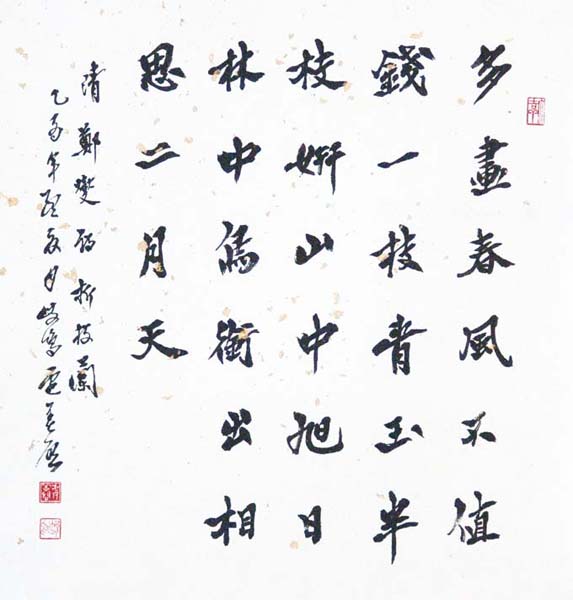 多畫春風不值
錢一枝青玉半
枝妍山中旭日
林中鳥銜出相
思二月天
清鄭燮詩折枝蘭
年 月